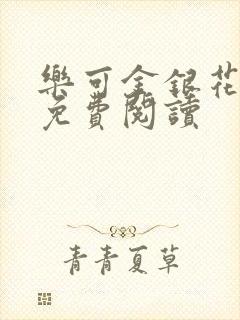 樂可金銀花
免費閱讀
青青夏草